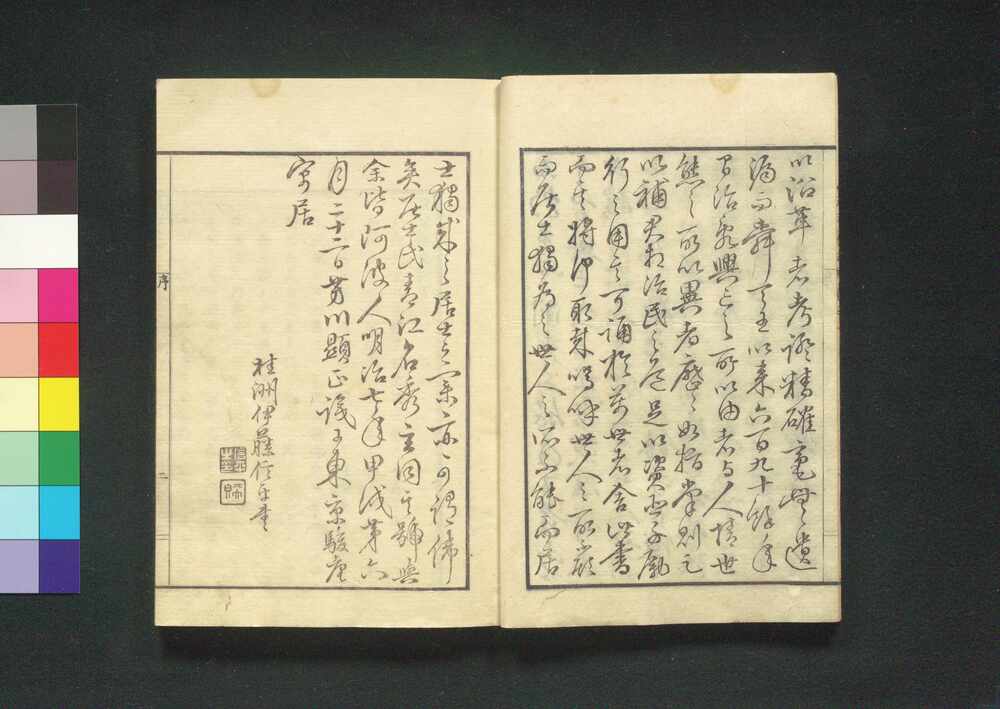 以沿革者考證精確毫無遺
漏而舜天王以来六百九十餘年
間治乱興亡之所以由者与人情世
態之所以異者歴々如指掌則之
以補君相治民之 足以資臣子
行之用其可誦於萬世者舍此書
而其将何取哉嗚呼世人之所
而居士獨為之世人之所不能而居
士獨成之居士之業亦可謂偉
矣居士氏青江名秀主同其號與
余皆阿波人明治七年甲戌第六
月二十二日芳川顕正識于東京駿臺
寓居
桂洲伊藤信平書
序
二